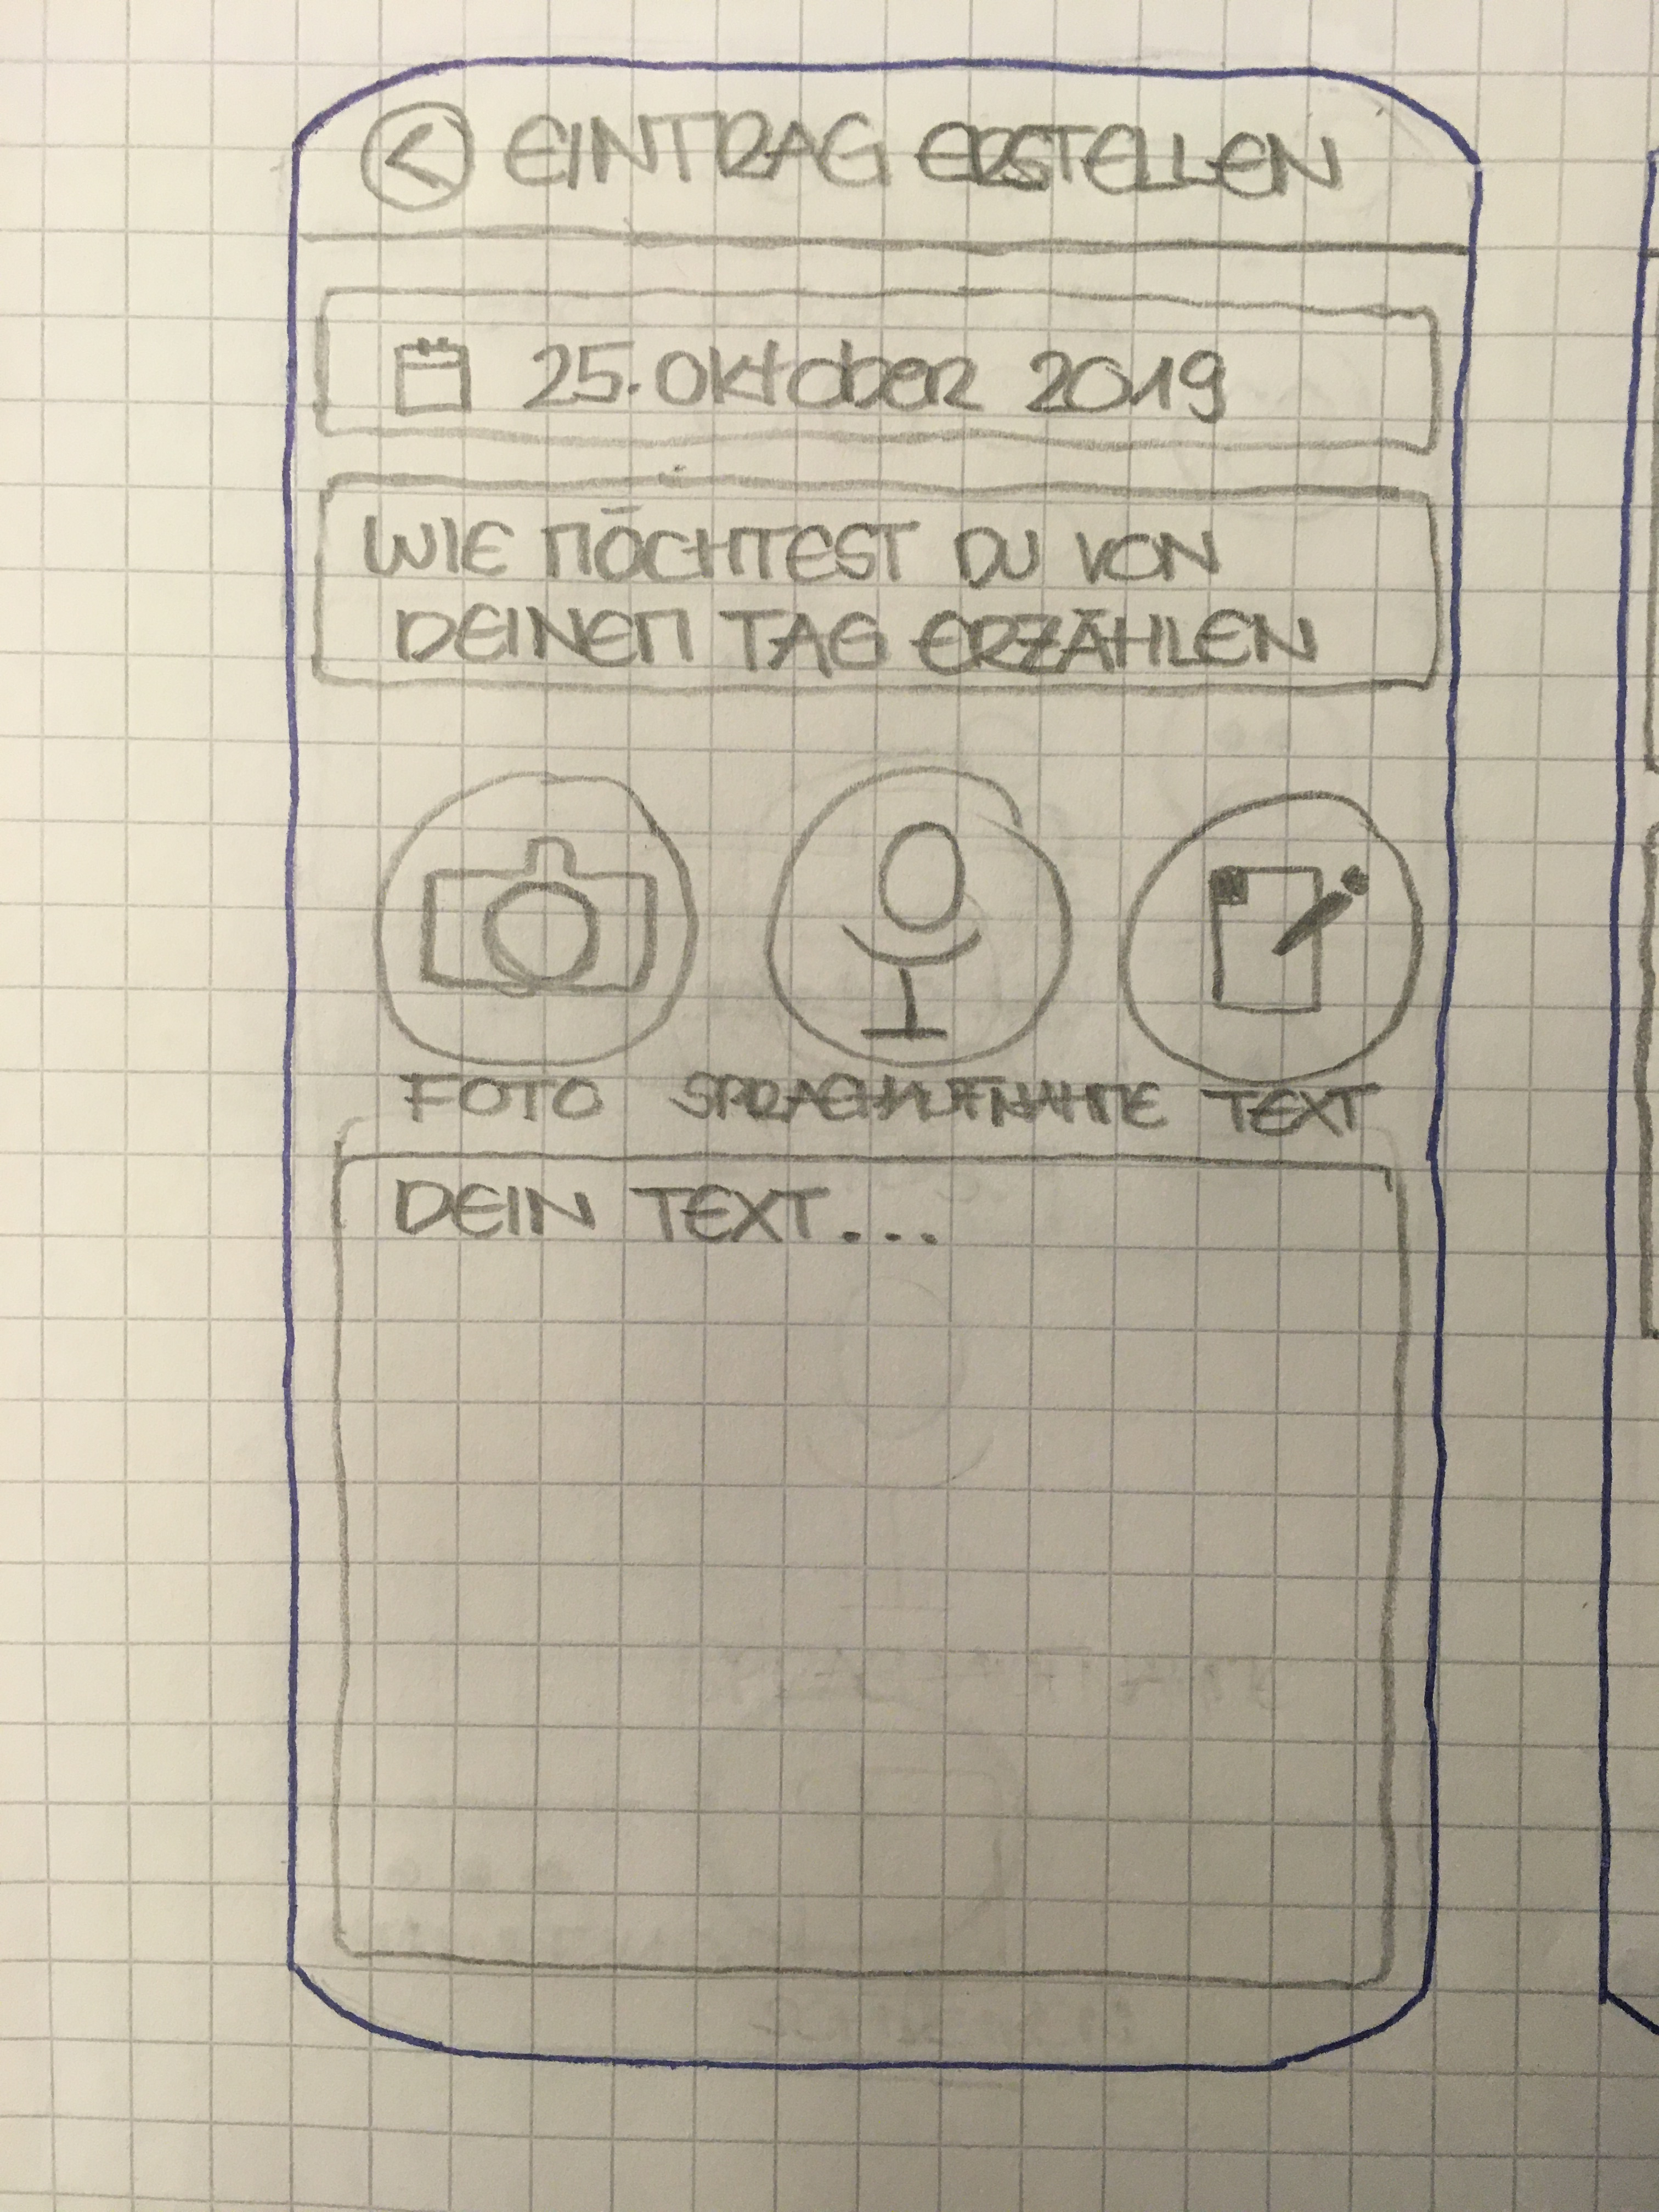 EINTRAG ERSTELLEN
25. Oktober 2019
WIE MÖCHTEST DU VON
DEINEM TAG ERZÄHLEN
FOTO SPRACHAUFNAHME TEXT
DEIN TEXT...